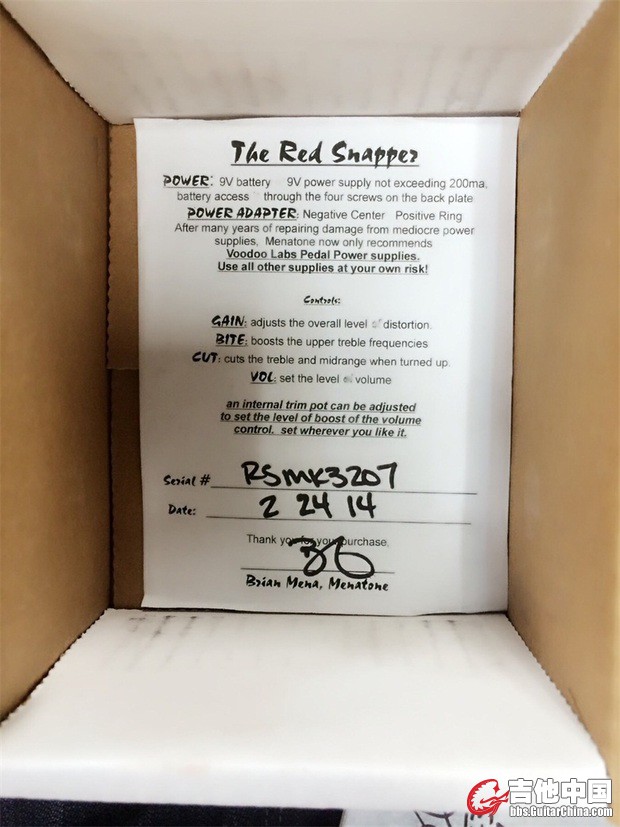 The Red Snapper
POWER: 9V battery 9V power supply not exceeding 200ma,
battery access through the four screws on the back plate
POWER ADAPTER: Negative Center Positive Ring
After many years of repairing damage from mediocre power
supplies, Menatone now only recommends
Voodoo Labs Pedal Power supplies.
Use all other supplies at your own risk!
Controls:
GAIN: adjusts the overall level of distortion.
BITE: boosts the upper treble frequencies
CUT: cuts the treble and midrange when turned up.
VOL: set the level of volume
an internal trim pot can be adjusted
to set the level of boost of the volume
control. set wherever you like it.
Serial # RSMK3207
Date: 2 24 14
Thank you for your purchase,
Brian Mena, Menatone
吉他中国
bbs.GuitarChina.com